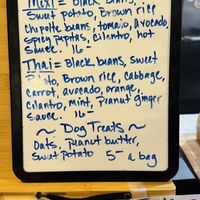 Mexi = Black Beans,
Sweet potato, Brown rice
Chipotle beans, tomato, Avocado,
Spicy Pepitas, cilantro, hot
Sauce. 16-
Thai = Black beans, Sweet
Brown rice, Cabbage,
Carrot, avocado, orange,
Cilantro, Mint, Peanut ginger
Sauce. 16-
~ Dog Treats ~
Oats, Peanut butter,
Sweet potato 5- a bag